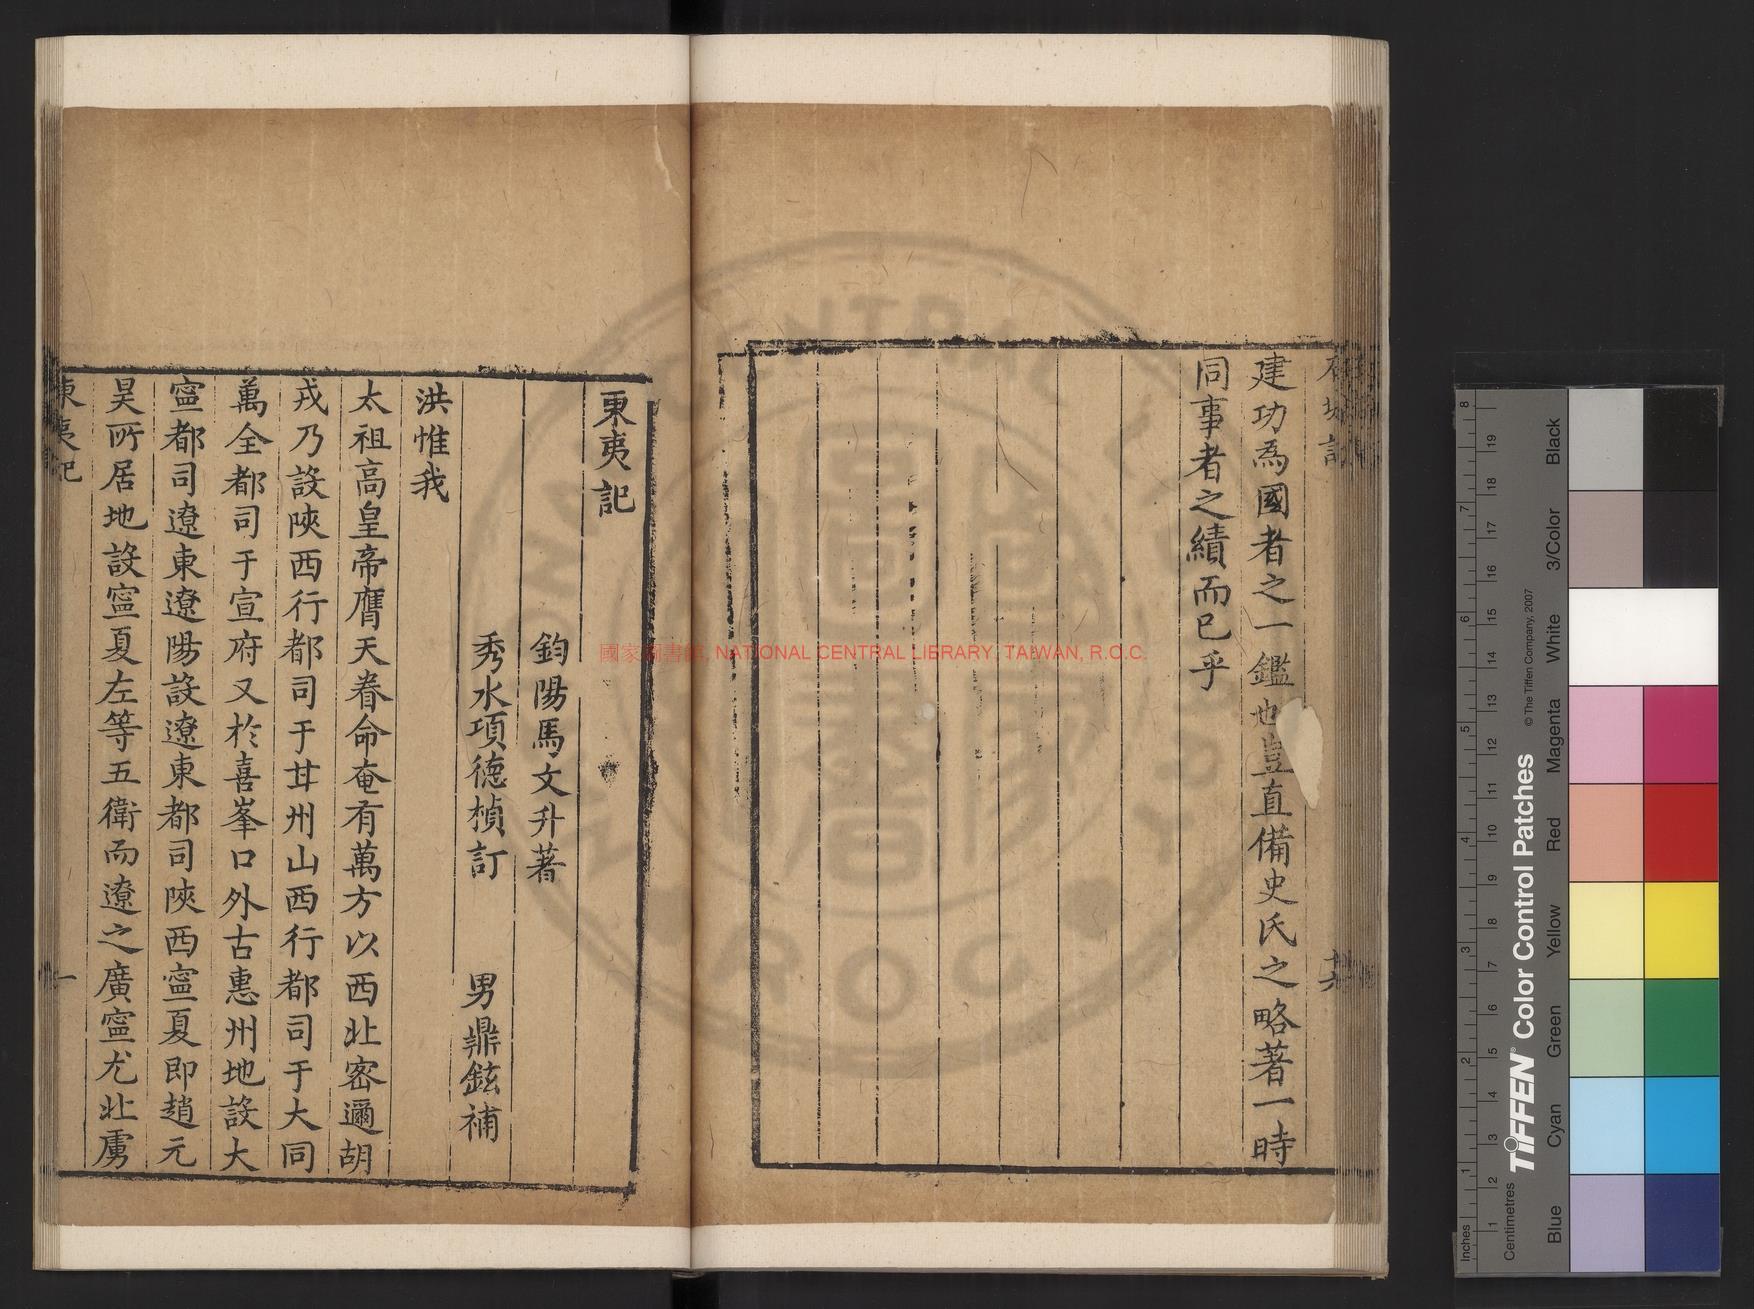 石城記
十六
建功為國者之一鑑也豈直備史氏之略著一時
同事者之績而已乎
東夷記
鈞陽馬文升著
秀水項德楨訂 男鼎鉉補
洪惟我
太祖高皇帝膺天眷命奄有萬方以西北密邇胡
戎乃設陝西行都司于甘州山西行都司于大同
萬全都司于宣府又於喜峯口外古惠州地設大
寧都司遼東遼陽設遼東都司陝西寧夏即趙元
昊所居地設寧夏左等五衛而遼之廣寧尤北虜
東夷記
一
國家圖書館, NATIONAL CENTRAL LIBRARY, TAIWAN, R.O.C.
TIFFEN® Color Control Patches
© The Tiffen Company, 2007
Inches
Centimetres
Blue
Cyan
Green
Yellow
Red
Magenta
White
3/Color
Black